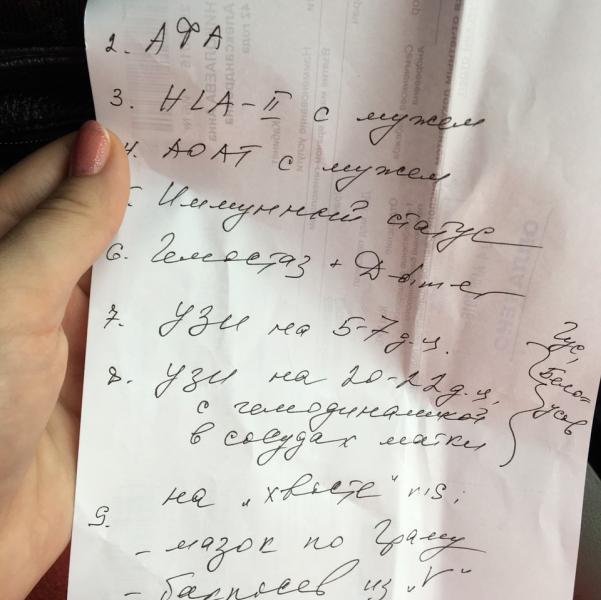 2. АФА
3. HLA-II с мужем
4. АОАТ с мужем
5. Иммунный статус
6. Гемостаз + D-димер
7. УЗИ на 5-7 д.ц.
8. УЗИ на 20-22 д.ц.
с гемодинамикой
в сосудах матки
Гус,
Бело=
усов
9. на "хвосте" m\s:
- мазок по Граму
- бакпосев из "V"